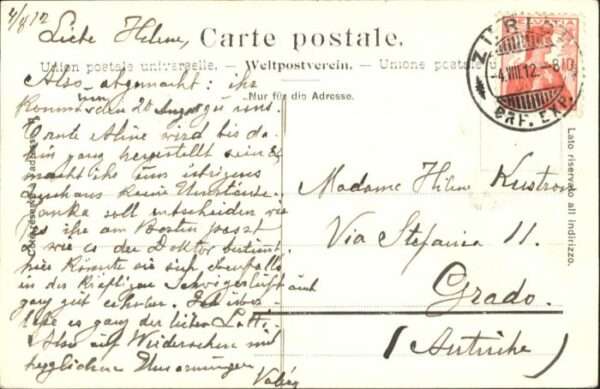 4/8 12
Liebe Helene,
Carte postale.
Union postale universelle. — Weltpostverein. — Unione postale u
Nur für die Adresse.
Lato riservato all indirizzo.
ZÜRICH
-4.VIII.12.-8
BRF. EXP.
HELVETIA
Also abgemacht: ihr
kommt am 20 August zu uns.
Tante Aline wird bis da-
hin ganz hergestellt sein &
macht ihr uns übrigens
durchaus keine Umstände.
soll entscheiden wie
es ihr am Besten passt
& wie es der Doktor bestimmt.
hier könnte sie sich ebenfalls
in der kräftigen Schweizerluft
ganz gut erholen. Ich über-
lasse es ganz der lieben
Also auf Wiedersehen mit
herzlichen Umarmungen
Madame Helene
Via Stefania 11.
Grado.
(Autriche)